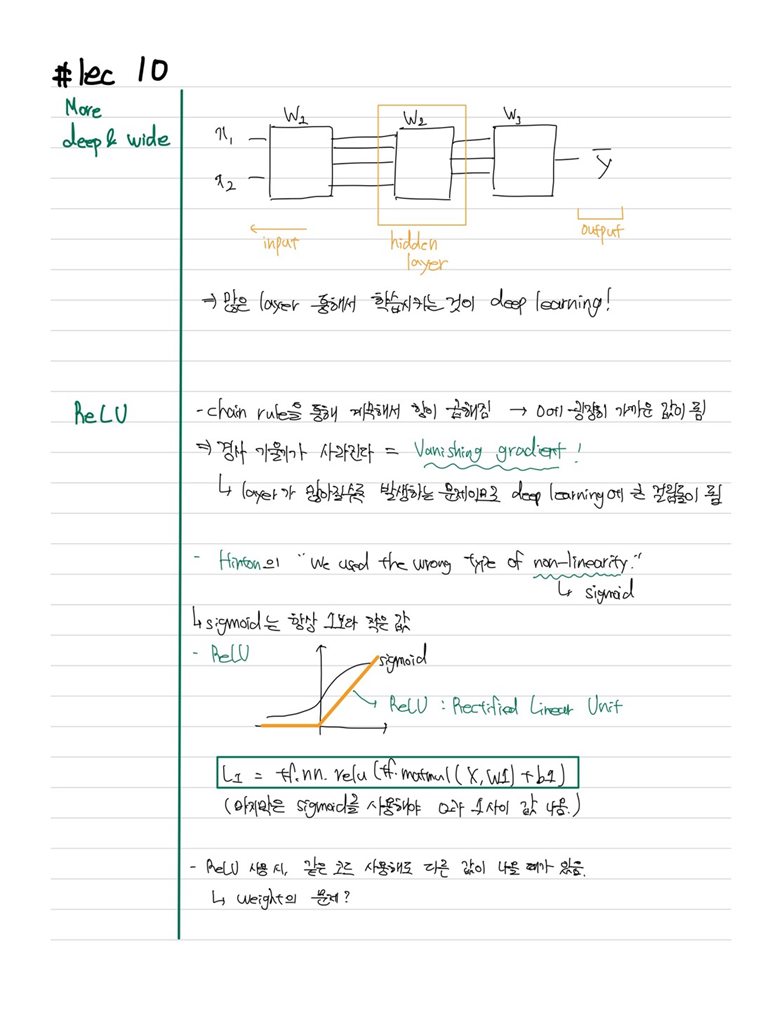 #lec 10
More
deep & wide
W1 W2 W3
x1
x2
ȳ
input
hidden
layer
output
⇒ 많은 layer 통해서 학습시키는 것이 deep learning!
ReLU
- chain rule을 통해 계속해서 항이 곱해짐 → 0에 굉장히 가까운 값이 됨
⇒ 경사 기울기가 사라진다 = Vanishing gradient!
↳ layer가 많아질수록 발생하는 문제이므로 deep learning에 큰 걸림돌이 됨
- Hinton의 "We used the wrong type of non-linearity."
↳ sigmoid
↳ sigmoid는 항상 1보다 작은 값
- ReLU
sigmoid
ReLU : Rectified Linear Unit
L1 = tf.nn.relu(tf.matmul(X,W1)+b1)
(마지막은 sigmoid를 사용해야 0과 1 사이 값 나옴.)
- ReLU 사용 시, 같은 코드 사용해도 다른 값이 나올 때가 있음.
↳ weight의 문제?